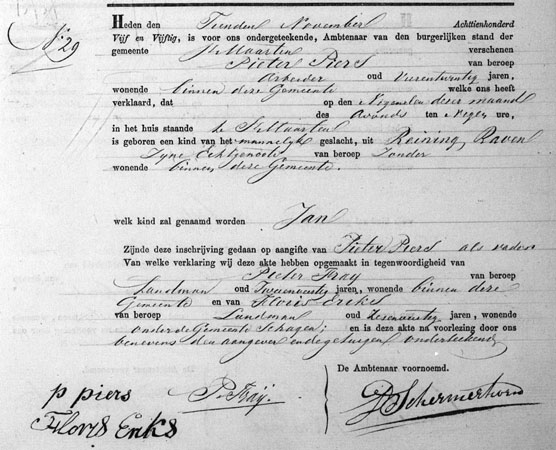 N: 29
Heden den Tienden November Achttienhonderd
Vijf en Vijftig, is voor ons ondergeteekende, Ambtenaar van den burgerlijken stand der
gemeente St Maarten verschenen
Pieter Piers van beroep
Arbeider oud Vierentwintig jaren,
wonende binnen deze Gemeente welke ons heeft
verklaard, dat op den Negenden dezer maand
des Avonds ten Negen ure,
in het huis staande te St Maarten
is geboren een kind van het mannelyk geslacht, uit Reining Raven
Zyne Echtgenoote van beroep Zonder
wonende binnen deze Gemeente.
welk kind zal genaamd worden Jan
Zijnde deze inschrijving gedaan op aangifte van Pieter Piers als vader
Van welke verklaring wij deze akte hebben opgemaakt in tegenwoordigheid van
Pieter Tray van beroep
Landman oud jaren, wonende binnen deze
Gemeente en van Floris Enkes
van beroep Landman oud jaren, wonende
onder de Gemeente Schagen; en is deze akte na voorlezing door ons
benevens den aangever en de getuigen onderteekend
De Ambtenaar voornoemd.
p piers P. Traij. Schermerhorn
Floris Enks